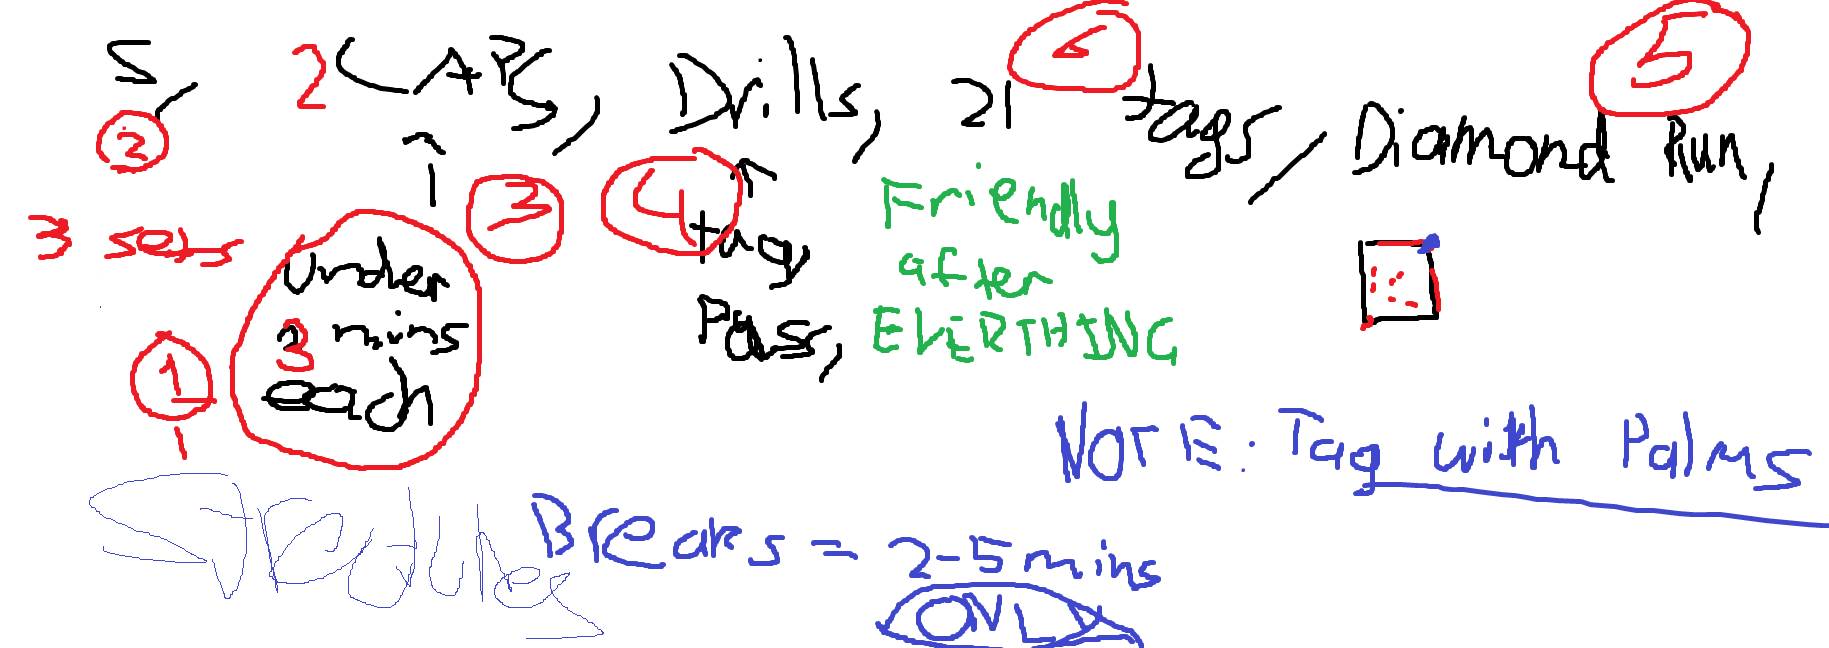 5, 2 LAPS, Drills, 21 tags, Diamond Run,
6
5
2
3
4
3 sets
Under
3 mins
each
tag,
Pass,
Friendly
after
EVERTHING
1
NOTE: Tag with Palms
Breaks = 2-5 mins
ONLY